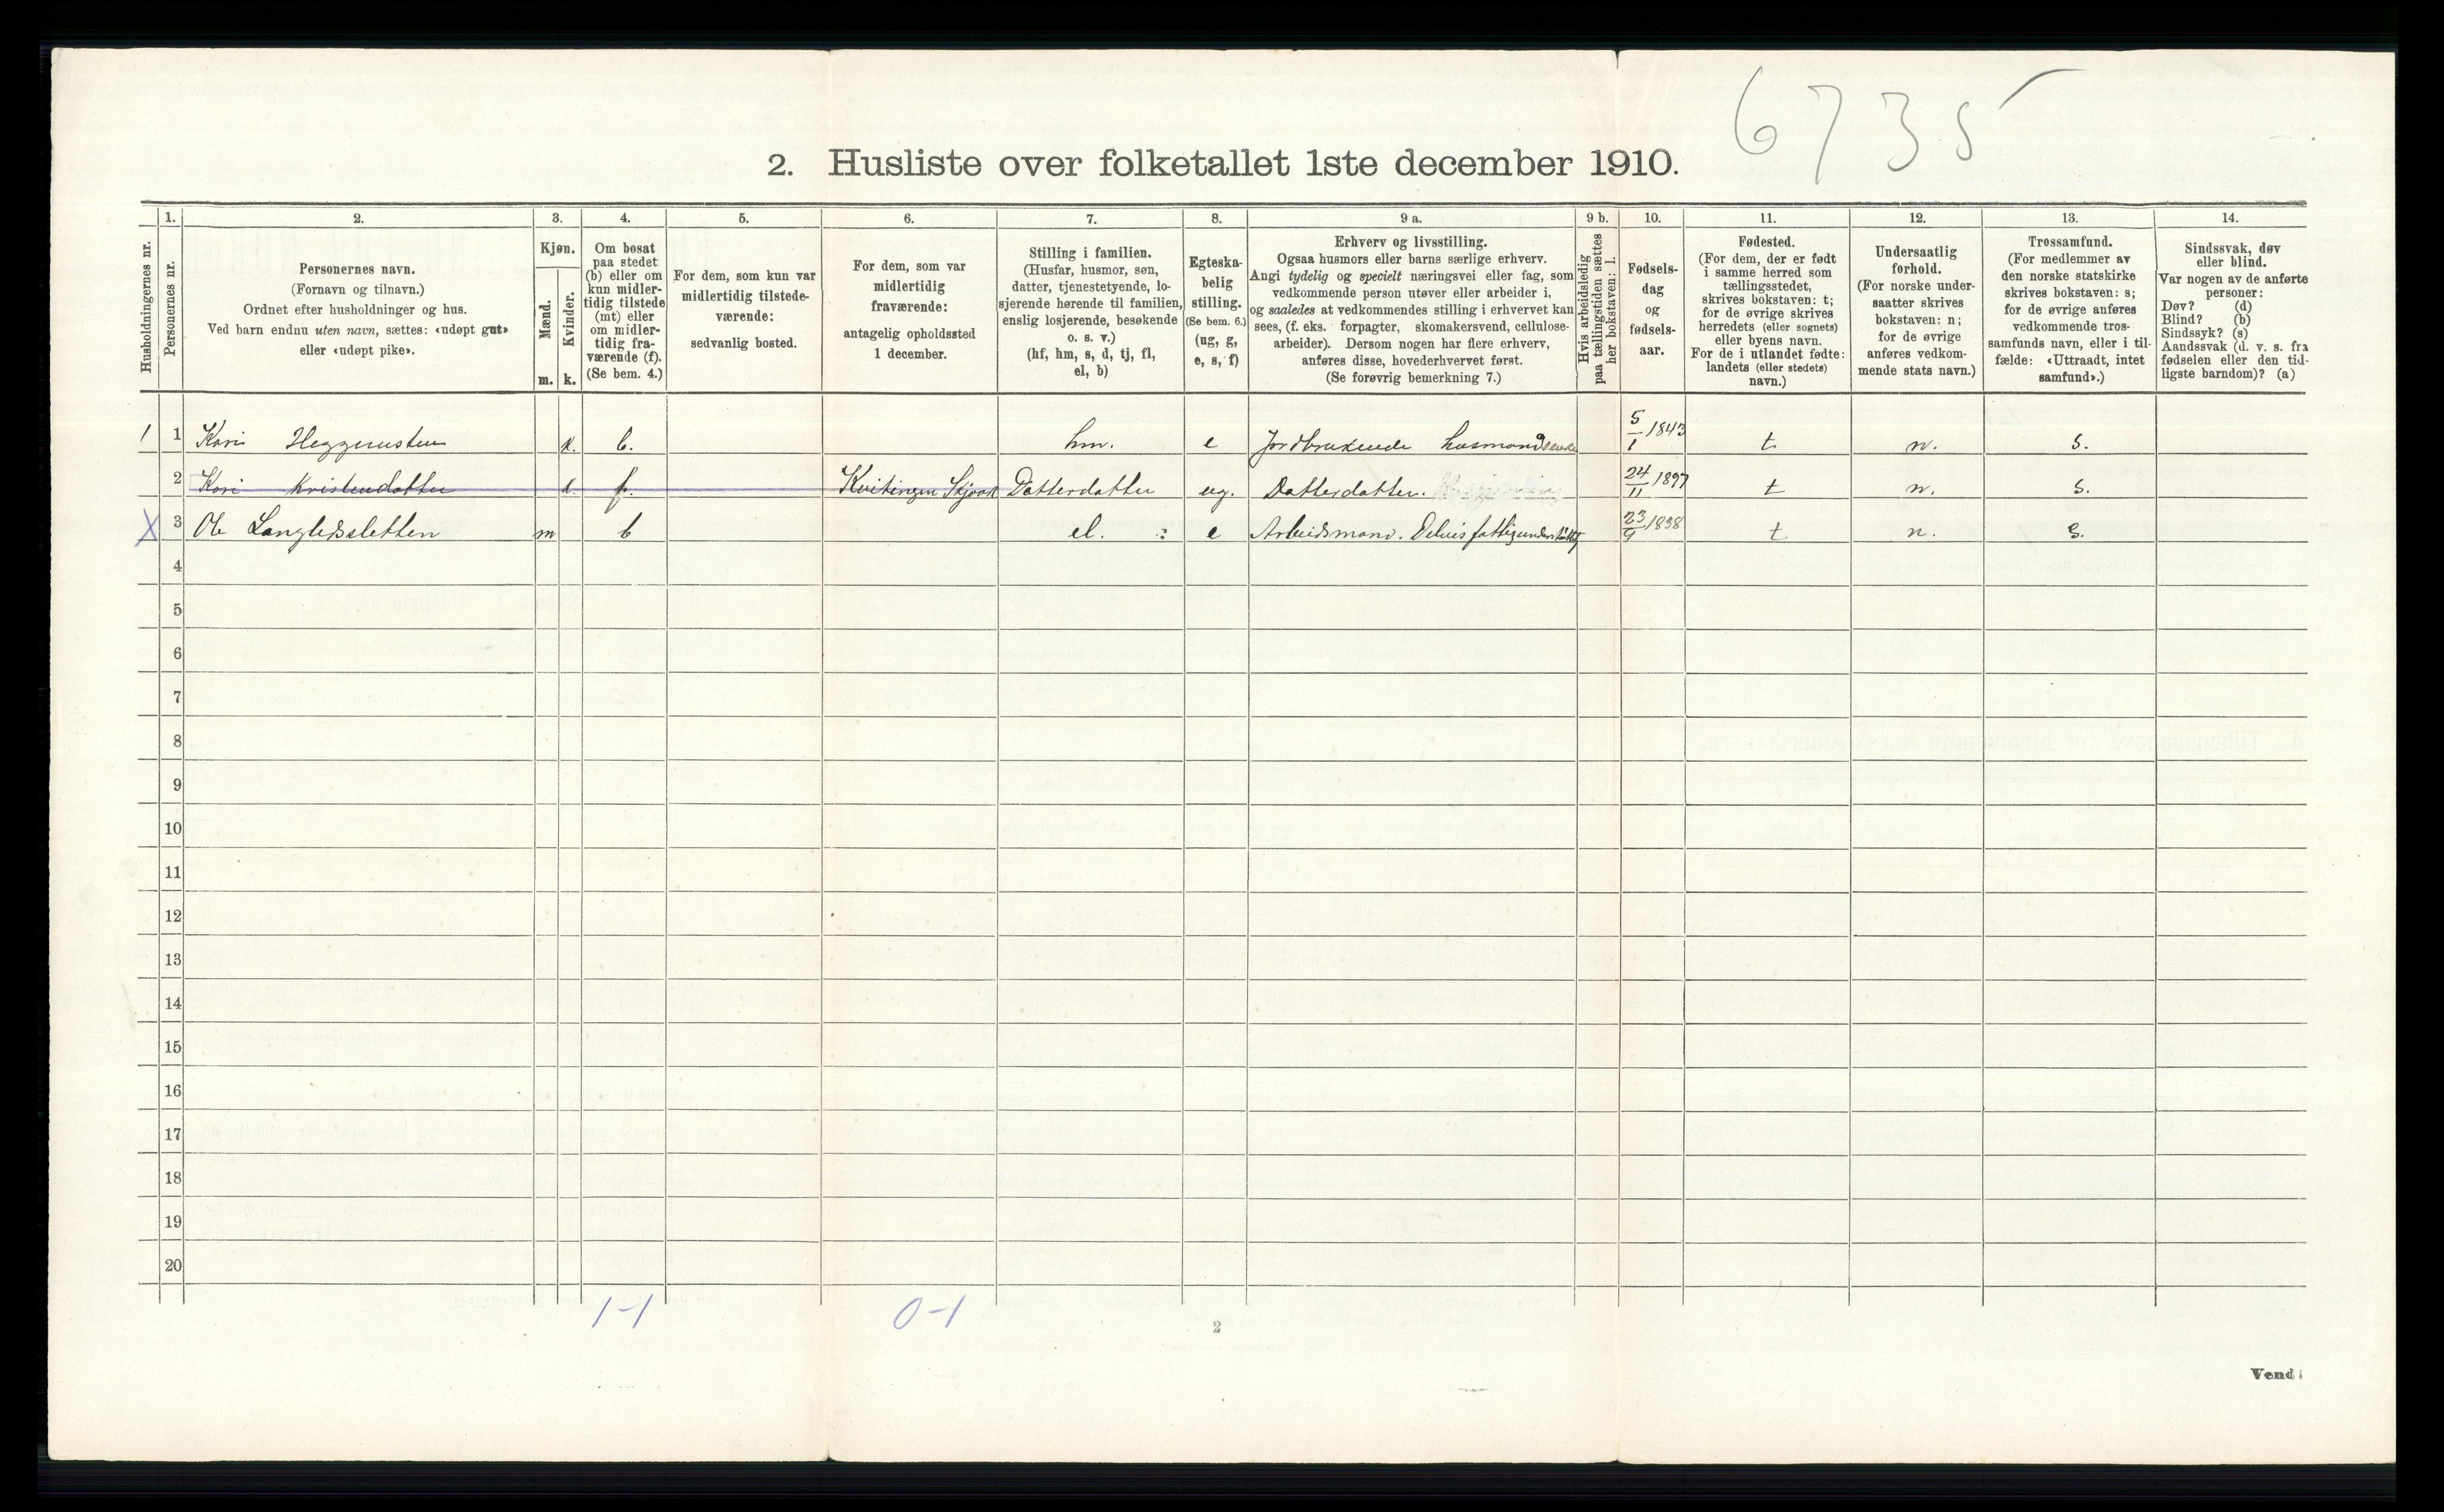 6735
2. Husliste over folketallet 1ste december 1910.
Husholdningernes nr.
1.
Personernes nr.
2.
Personernes navn.
(Fornavn og tilnavn.)
Ordnet efter husholdninger og hus.
Ved barn endnu uten navn, sættes: «udøpt gut»
eller «udøpt pike».
3.
Kjøn.
Mænd.
m.
Kvinder.
k.
4.
Om bosat
paa stedet
(b) eller om
kun midler-
tidig tilstede
(mt) eller
om midler-
tidig fra-
værende (f).
(Se bem. 4.)
5.
For dem, som kun var
midlertidig tilstede-
værende:
sedvanlig bosted.
6.
For dem, som var
midlertidig
fraværende:
antagelig opholdssted
1 december.
7.
Stilling i familien.
(Husfar, husmor, søn,
datter, tjenestetyende, lo-
sjerende hørende til familien,
enslig losjerende, besøkende
o. s. v.)
(hf, hm, s, d, tj, fl,
el, b)
8.
Egteska-
belig
stilling.
(Se bem. 6.)
(ug, g,
e, s, f)
9 a.
Erhverv og livsstilling.
Ogsaa husmors eller barns særlige erhverv.
Angi tydelig og specielt næringsvei eller fag, som
vedkommende person utøver eller arbeider i,
og saaledes at vedkommendes stilling i erhvervet kan
sees, (f. eks. forpagter, skomakersvend, cellulose-
arbeider). Dersom nogen har flere erhverv,
anføres disse, hovederhvervet først.
(Se forøvrig bemerkning 7.)
9 b.
Hvis arbeidsledig
paa tællingstiden sættes
her bokstaven: l.
10.
Fødsels-
dag
og
fødsels-
aar.
11.
Fødested.
(For dem, der er født
i samme herred som
tællingsstedet,
skrives bokstaven: t;
for de øvrige skrives
herredets (eller sognets)
eller byens navn.
For de i utlandet fødte:
landets (eller stedets)
navn.)
12.
Undersaatlig
forhold.
(For norske under-
saatter skrives
bokstaven: n;
for de øvrige
anføres vedkom-
mende stats navn.)
13.
Trossamfund.
(For medlemmer av
den norske statskirke
skrives bokstaven: s;
for de øvrige anføres
vedkommende tros-
samfunds navn, eller i til-
fælde: «Uttraadt, intet
samfund».)
14.
Sindssvak, døv
eller blind.
Var nogen av de anførte
personer:
Døv? (d)
Blind? (b)
Sindssyk? (s)
Aandssvak (d. v. s. fra
fødselen eller den tid-
ligste barndom)? (a)
1 1 Kari k. b. hm. e Jordbrukende husmands 5/1 1843 t n. s.
2 Kari Kristensdatter k. f. Kvitingen Skjaak Datterdatter ug. Datterdatter. 24/11 1897 t n. s.
X 3 Ole m b el. : e Arbeidsmand. Delvis fattigunderstøttet 23/9 1838 t n. s.
4
5
6
7
8
9
10
11
12
13
14
15
16
17
18
19
20
1-1 0-1
2
Vend!